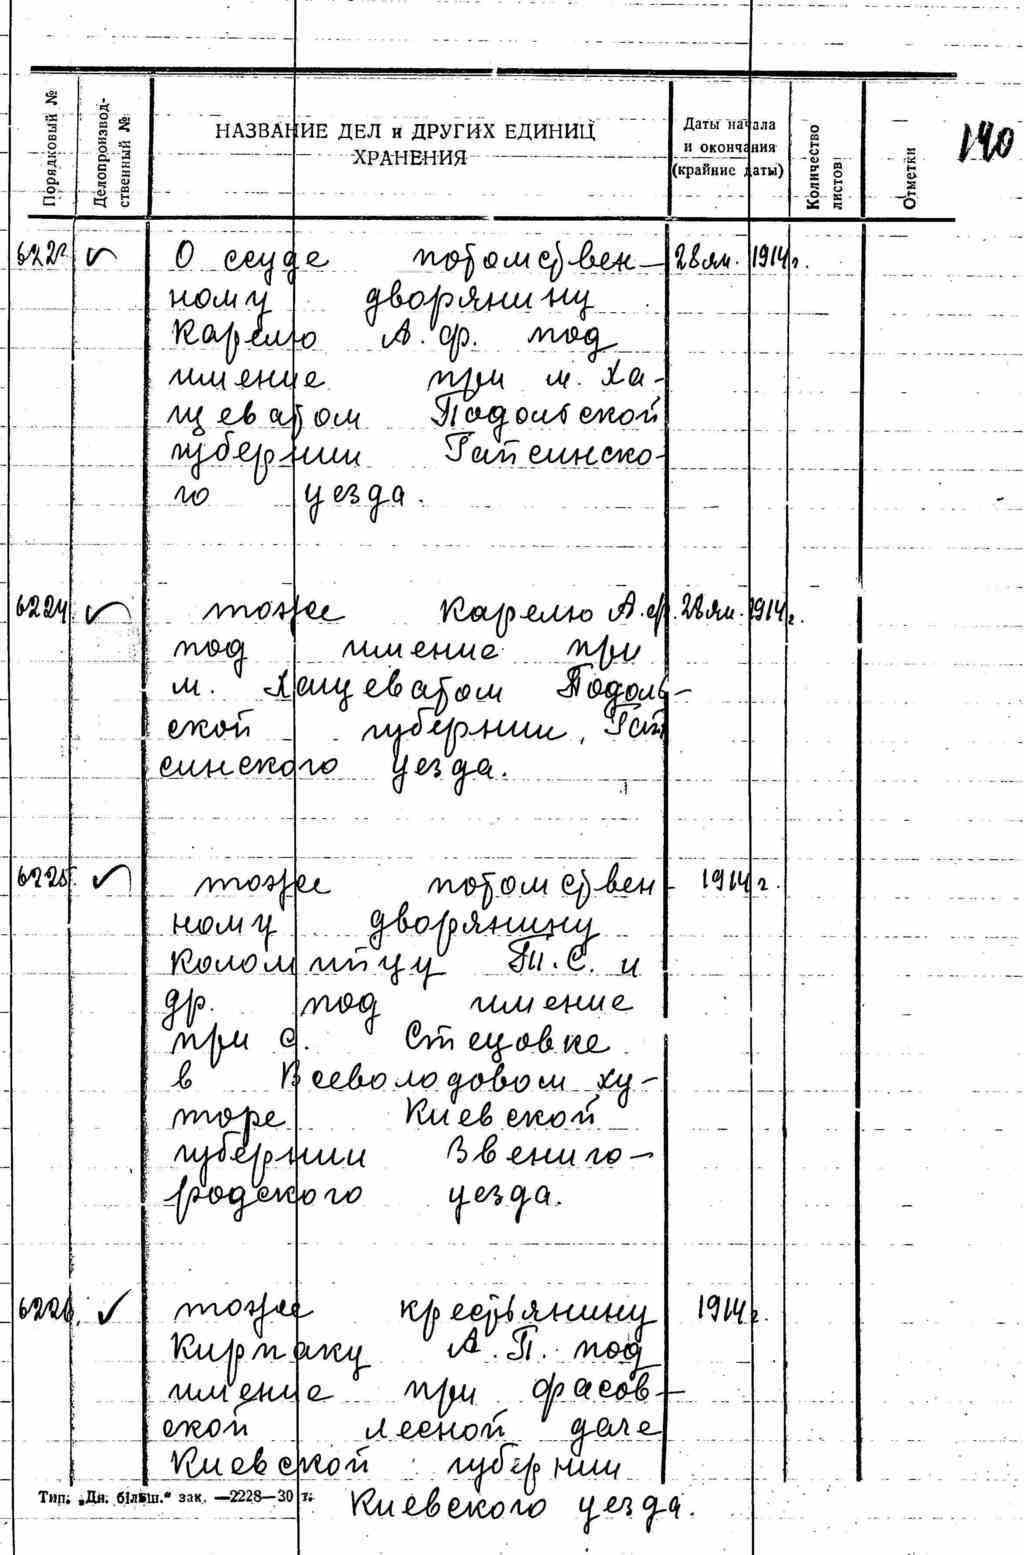 Порядковый №
Делопроизвод-
ственный №
НАЗВАНИЕ ДЕЛ и ДРУГИХ ЕДИНИЦ
ХРАНЕНИЯ
Даты начала
и окончания
(крайние даты)
Количество
листов
Отметки
140
О ссуде потомствен- 28 ян. 1914 г.
ному дворянину
Карелю А.Ф. под
имение при м. Ха-
щеватом Подольской
губернии Гайсинско-
го уезда.
6224 тоже Карелю А.Ф. 28 ян. 1914 г.
под имение при
м. Хащеватом Подоль-
ской губернии, Гай
синского уезда.
6225. тоже потомствен- 1914 г.
ному дворянину
Коломийцу П.С. и
др. под имение
при с. Стецовке
в Всеволодовом ху-
торе Киевской
губернии Звениго-
родского уезда.
6226. тоже крестьянину 1914 г.
Кирпаку А.П. под
имение при Фасов-
ской лесной даче
Киевской губернии
Киевского уезда.
Тип. „Дн. більш." зак. —2228—30 т.